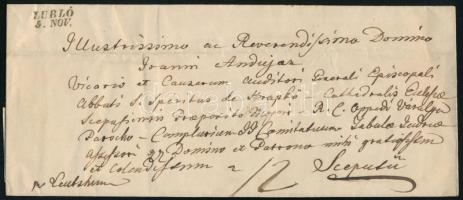 LUBLÓ
5. NOV.
Illustrissimo ac Reverendissimo Domino
Ioanni Andujaz
Vicario et Causarum Auditori Gnrali Episcopali
Abbati S. Spiritus de Cathedralis Eclesiae
Scepusiensis Praeposito Majori R. C. Oppidi
Parocho Complurium Comitatuum Tabulae Judriae
Assessori Domino et Patrono mihi gratiossm
et Colendissimo 12 Scepusii
pr Leutschau